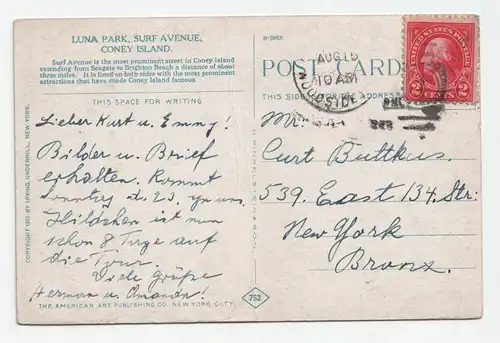 LUNA PARK, SURF AVENUE,
CONEY ISLAND.
Surf Avenue is the most prominent street in Coney Island
extending from Seagate to Brighton Beach a distance of about
three miles. It is lined on both sides with the most prominent
attractions that have made Coney Island famous.
THIS SPACE FOR WRITING
Lieber Kurt u. Emmy!
Bilder u. Brief
erhalten. Kommt
Sonntag d. 23. zu uns.
Hildchen ist nun
schon 8 Tage auf
die Tour.
Viele Grüße
Herman u. Amanda!
THE AMERICAN ART PUBLISHING CO. NEW YORK CITY.
COPYRIGHT 1912 BY IRVING UNDERHILL, NEW YORK.
POST CARD
AUG 15
10 AM
WOODSIDE
UNITED STATES POSTAGE
2 CENTS 2
Mr.
Curt Buttkus.
539. East 134. Str:
New York
Bronx.
752